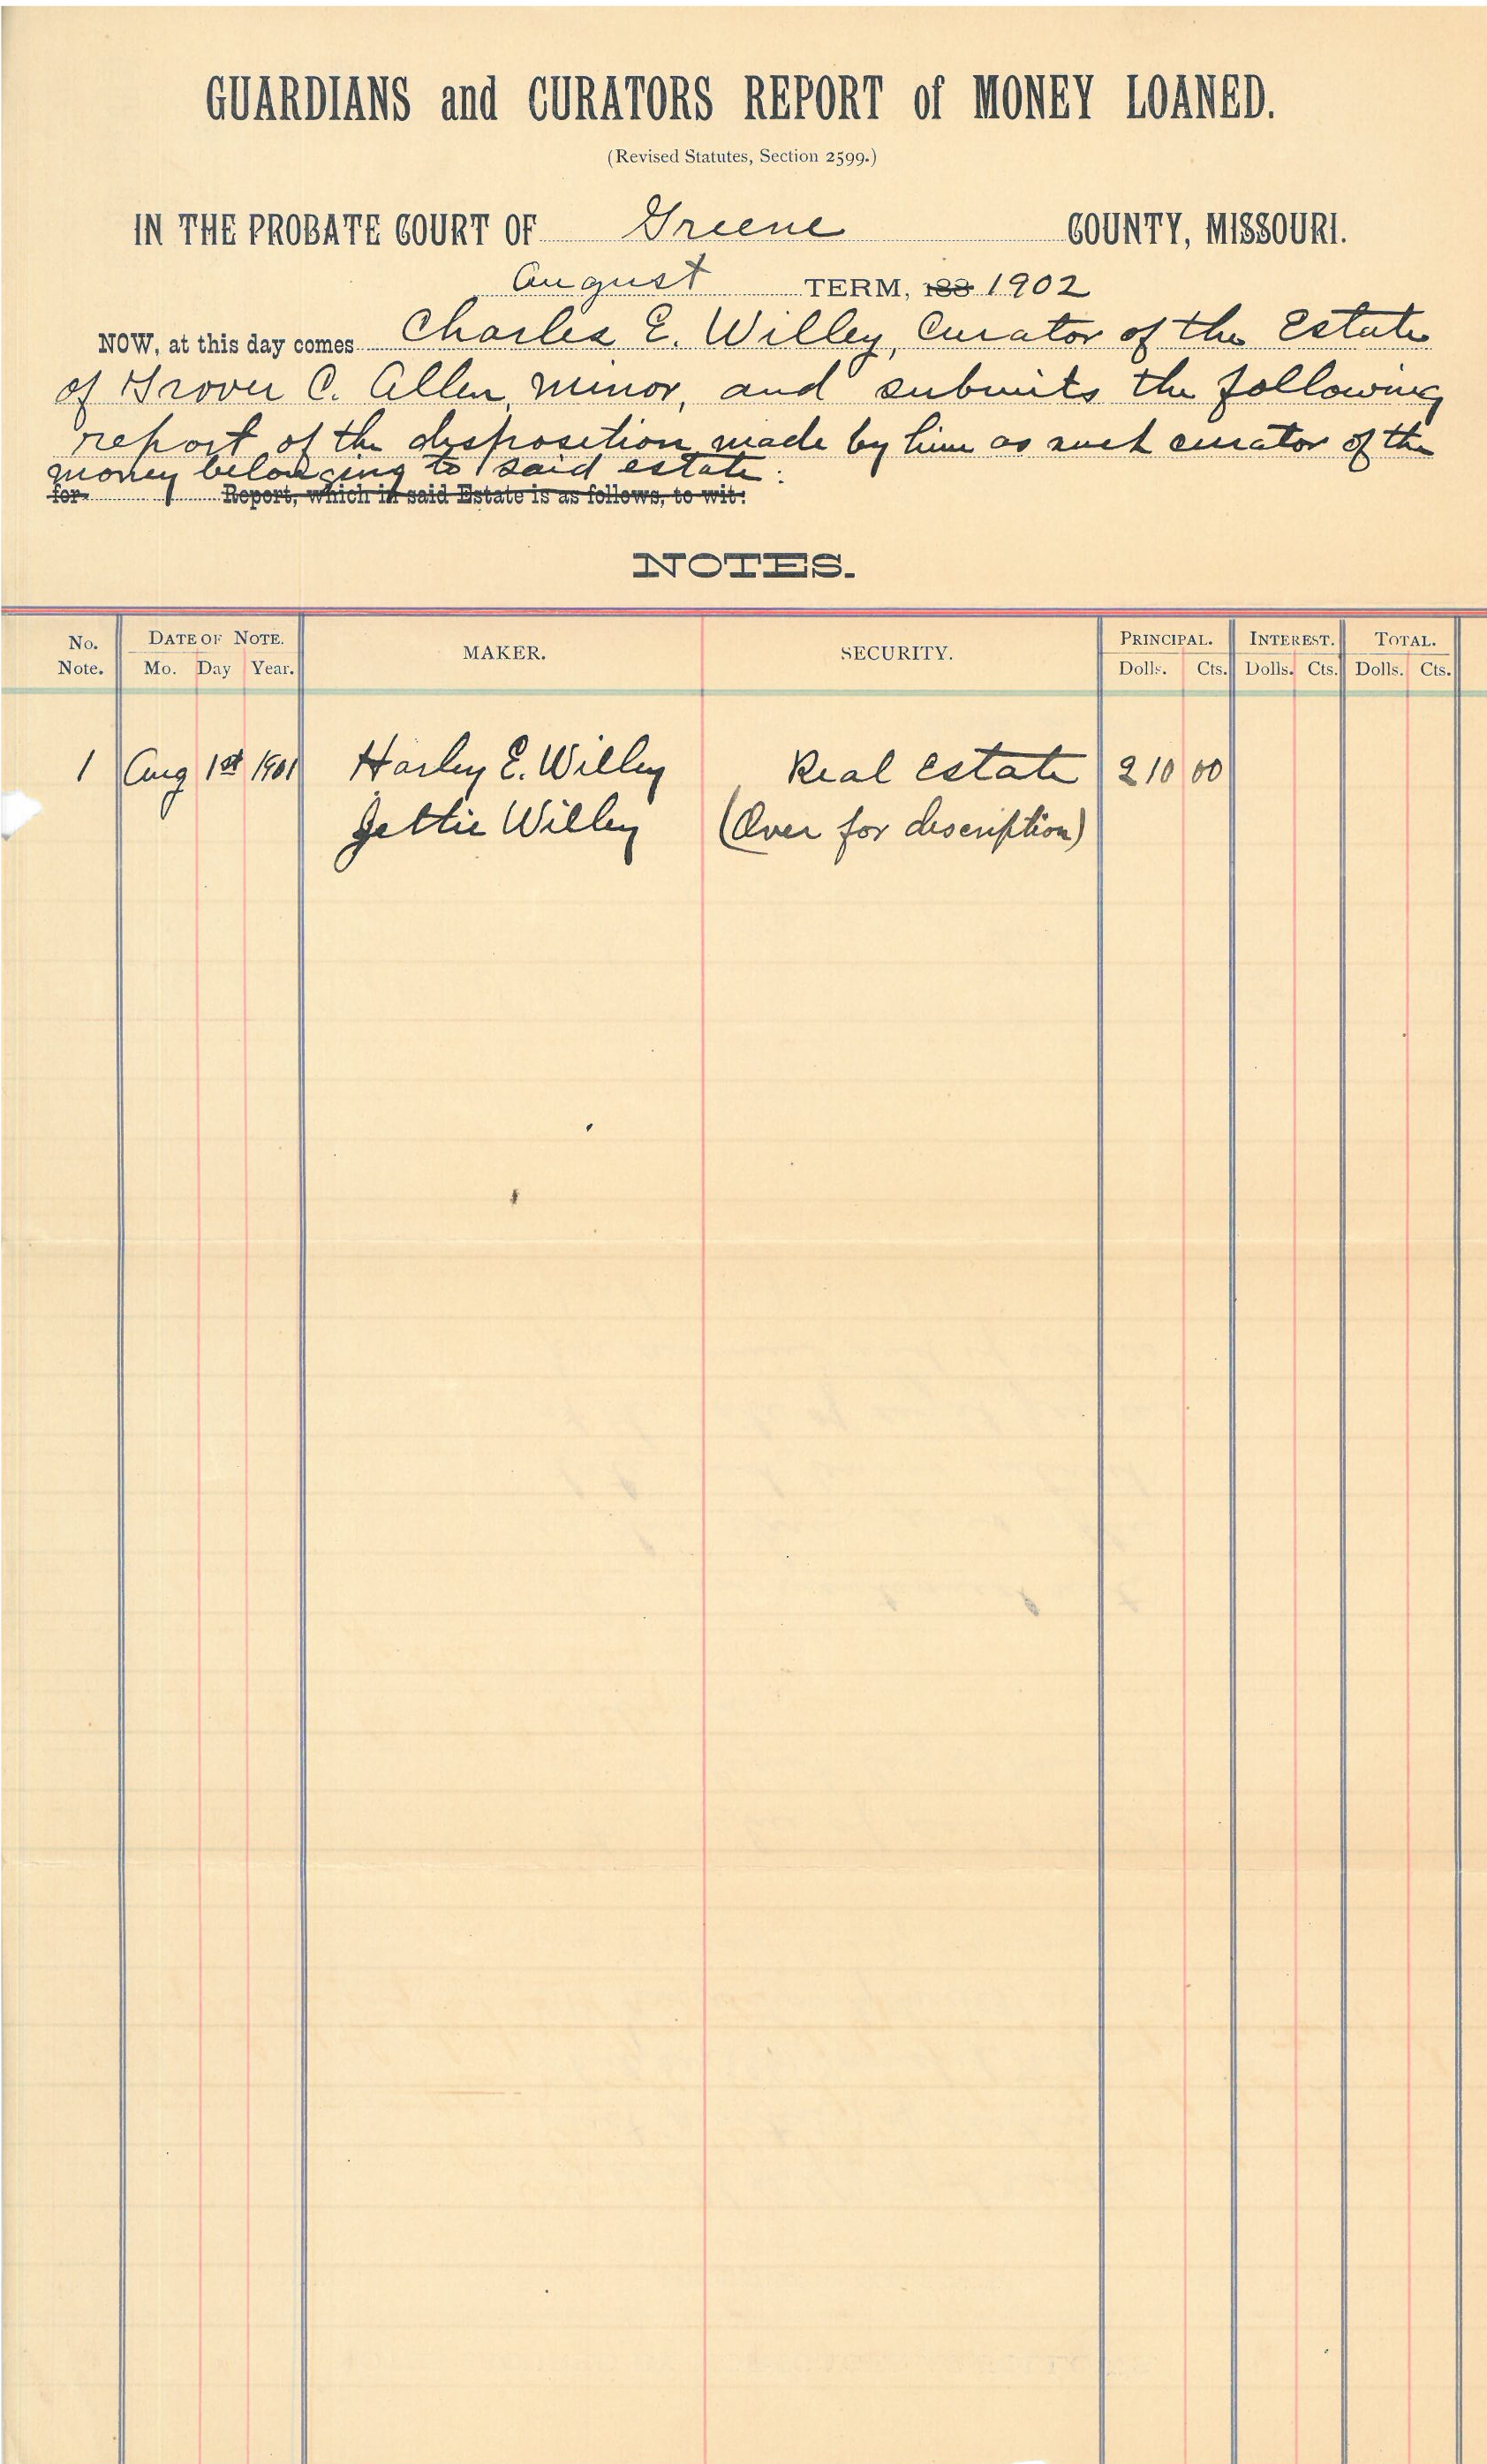 GUARDIANS and CURATORS REPORT of MONEY LOANED.
(Revised Statutes, Section 2599.)
IN THE PROBATE COURT OF Greene COUNTY, MISSOURI.
August TERM, 188 1902
NOW, at this day comes Charles E. Willey, Curator of the Estate
of Grover C. Allen, minor, and submits the following
report of the disposition made by him as such curator of the
money belonging to said estate:
for Report, which in said Estate is as follows, to wit:
NOTES.
No. Note. DATE OF NOTE. Mo. Day Year. MAKER. SECURITY. PRINCIPAL. Dolls. Cts. INTEREST. Dolls. Cts. TOTAL. Dolls. Cts.
1 Aug 1st 1901 Harley E. Willey Real Estate 210 00
Jettie Willey (Over for description)